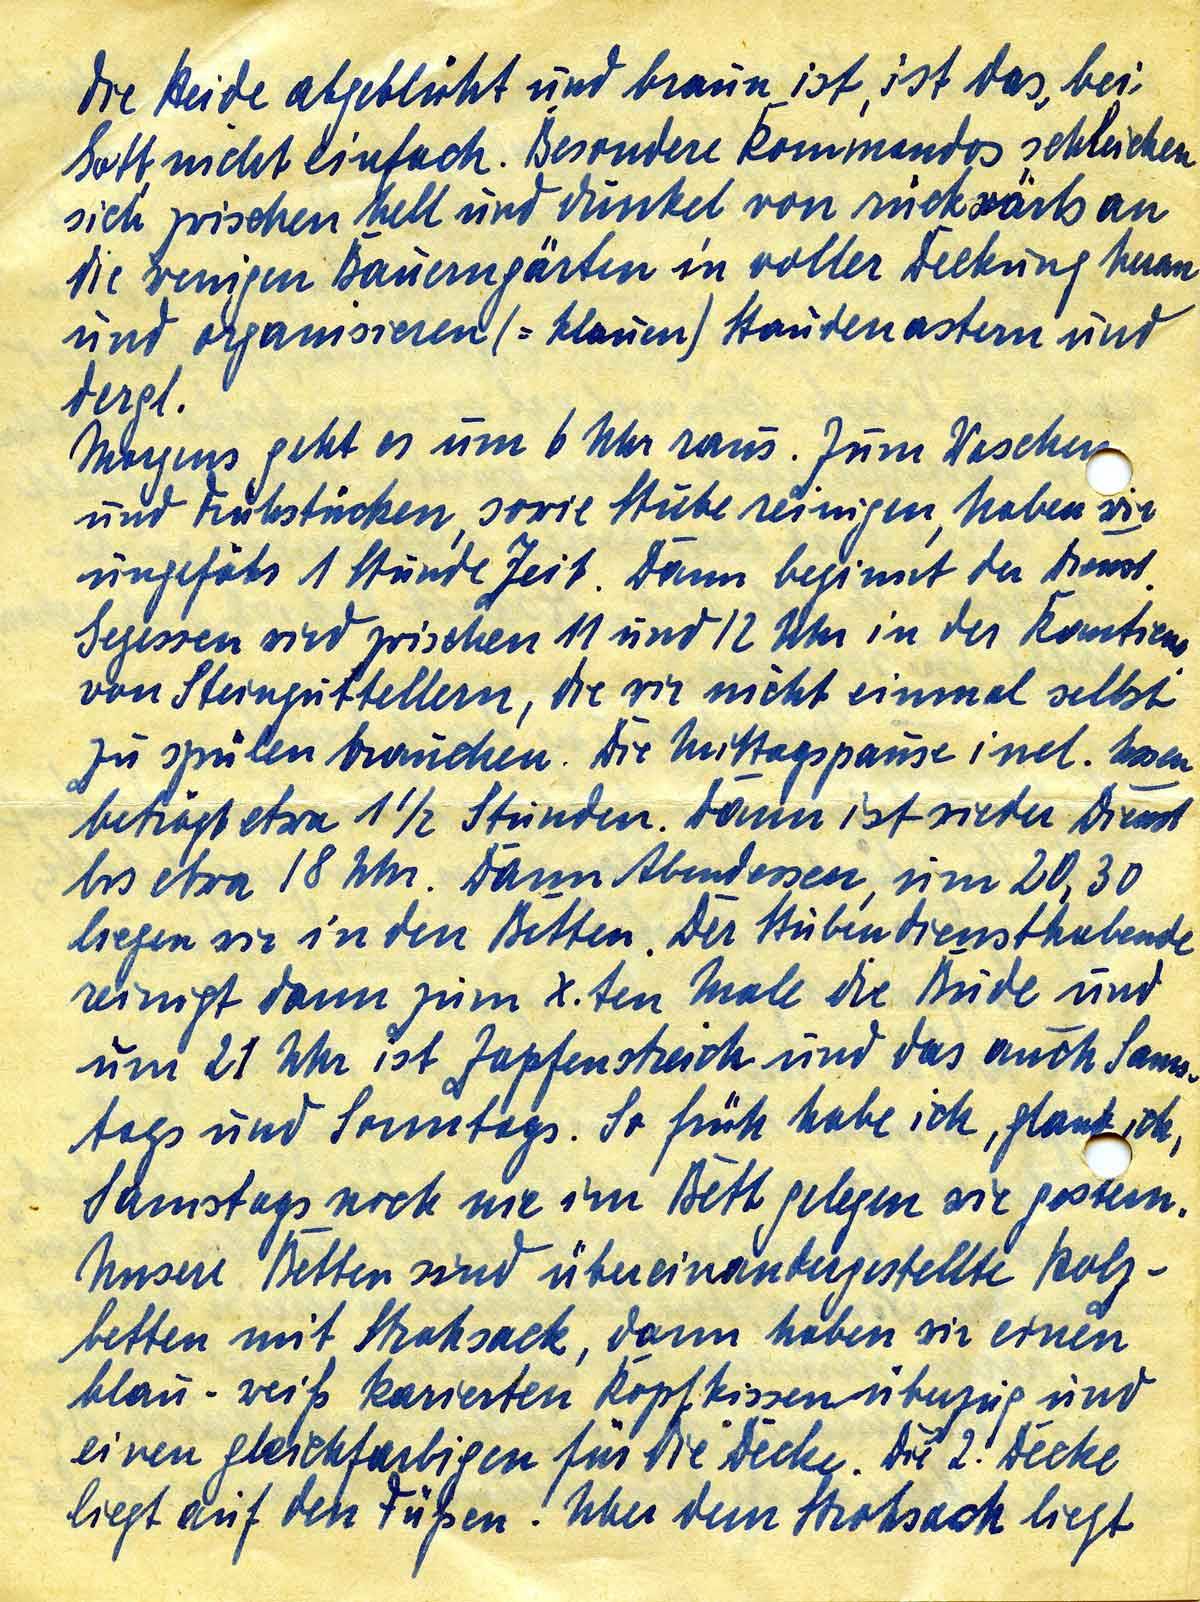 die Heide abgeblüht und braun ist, ist das, bei
Gott, nicht einfach. Besondere Kommandos schleichen
sich zwischen hell und dunkel von rückwärts an
die wenigen Bauerngärten in voller Deckung heran
und organisieren (= klauen) Staudenastern und
dergl.
Morgens geht es um 6 Uhr raus. Zum Waschen
und Frühstücken, sowie Stube reinigen, haben wir
ungefähr 1 Stunde Zeit. Dann beginnt der Dienst.
Gegessen wird zwischen 11 und 12 Uhr in der Kantine
von Steinguttellern, die wir nicht einmal selbst
zu spülen brauchen. Die Mittagspause incl. Essen
beträgt etwa 1 1/2 Stunden. Dann ist wieder Dienst
bis etwa 18 Uhr. Dann Abendessen, um 20,30
liegen wir in den Betten. Der Stubendiensthabende
reinigt dann zum x.ten Male die Bude und
um 21 Uhr ist Zapfenstreich und das auch Sams-
tags und Sonntags. So früh habe ich, glaub ich,
Samstags noch nie im Bett gelegen wie gestern.
Unsere Betten sind übereinandergestellte Holz-
betten mit Strohsack, dann haben wir einen
blau-weiß karierten Kopfkissenüberzug und
einen gleichfarbigen für die Decke. Die 2. Decke
liegt auf den Füßen. Über dem Strohsack liegt